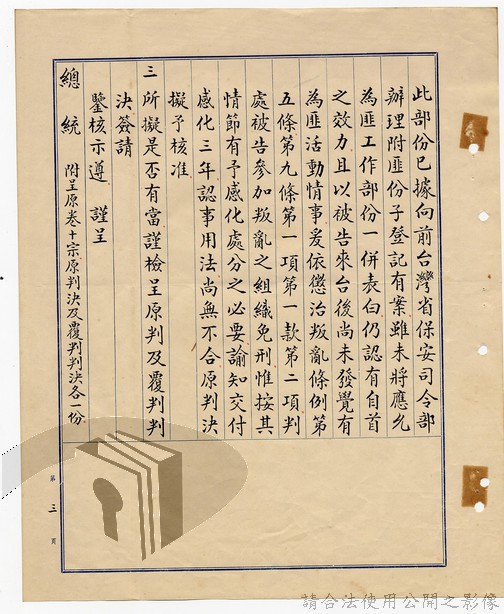 此部份已據向前台灣省保安司令部
辦理附匪份子登記有案雖未將應允
為匪工作部份一併表白仍認有自首
之效力且以被告來台後尚未發覺有
為匪活動情事爰依懲治叛亂條例第
五條第九條第一項第一款第二項判
處被告參加叛亂之組織免刑惟按其
情節有予感化處分之必要諭知交付
感化三年認事用法尚無不合原判決
擬予核准
三所擬是否有當謹檢呈原判及覆判判
決簽請
鑒核示遵　謹呈
總統　附呈原卷十宗原判決及覆判判決各一份
第三頁
請合法使用公開之影像